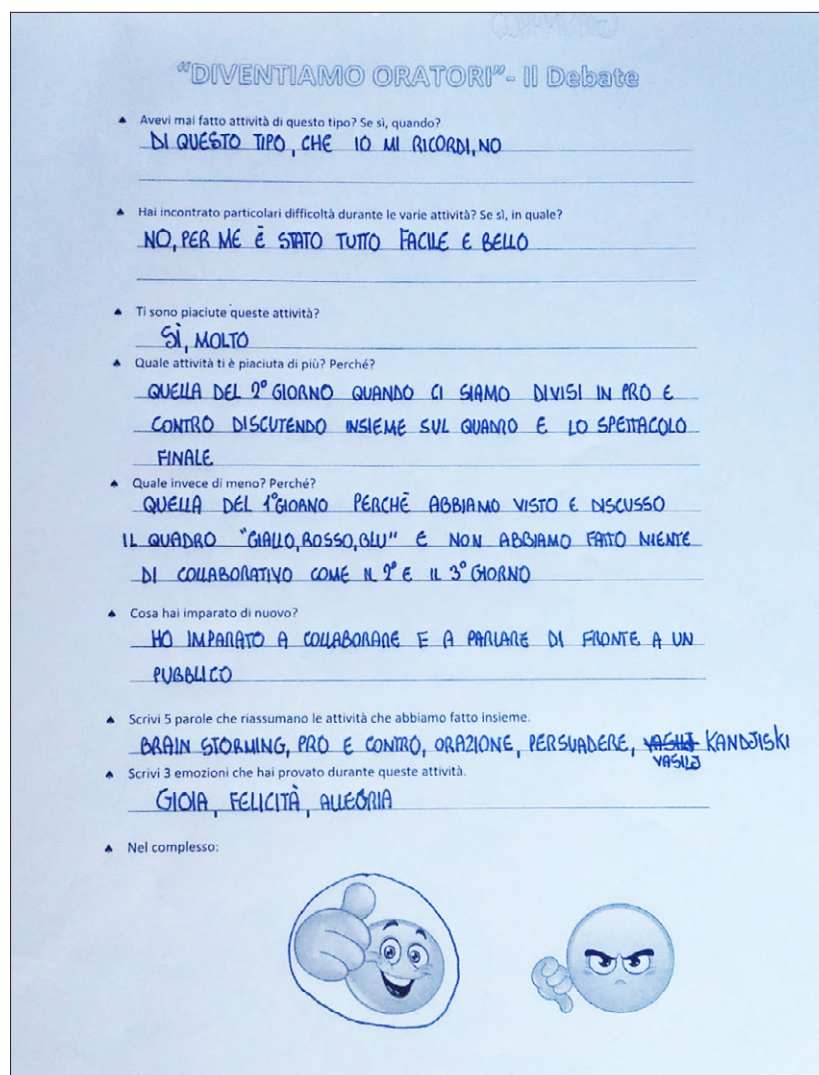 "DIVENTIAMO ORATORI"- Il Debate
♠ Avevi mai fatto attività di questo tipo? Se sì, quando?
DI QUESTO TIPO, CHE IO MI RICORDI, NO
♠ Hai incontrato particolari difficoltà durante le varie attività? Se sì, in quale?
NO, PER ME È STATO TUTTO FACILE E BELLO
♠ Ti sono piaciute queste attività?
SÌ, MOLTO
♠ Quale attività ti è piaciuta di più? Perché?
QUELLA DEL 2° GIORNO QUANDO CI SIAMO DIVISI IN PRO E
CONTRO DISCUTENDO INSIEME SUL QUADRO E LO SPETTACOLO
FINALE
♠ Quale invece di meno? Perché?
QUELLA DEL 1° GIORNO PERCHÈ ABBIAMO VISTO E DISCUSSO
IL QUADRO "GIALLO, ROSSO, BLU" E NON ABBIAMO FATTO NIENTE
DI COLLABORATIVO COME IL 2° E IL 3° GIORNO
♠ Cosa hai imparato di nuovo?
HO IMPARATO A COLLABORARE E A PARLARE DI FRONTE A UN
PUBBLICO
♠ Scrivi 5 parole che riassumano le attività che abbiamo fatto insieme.
BRAIN STORMING, PRO E CONTRO, ORAZIONE, PERSUADERE, VASILJ KANDJISKI
VASILJ
♠ Scrivi 3 emozioni che hai provato durante queste attività.
GIOIA, FELICITÀ, ALLEGRIA
♠ Nel complesso: